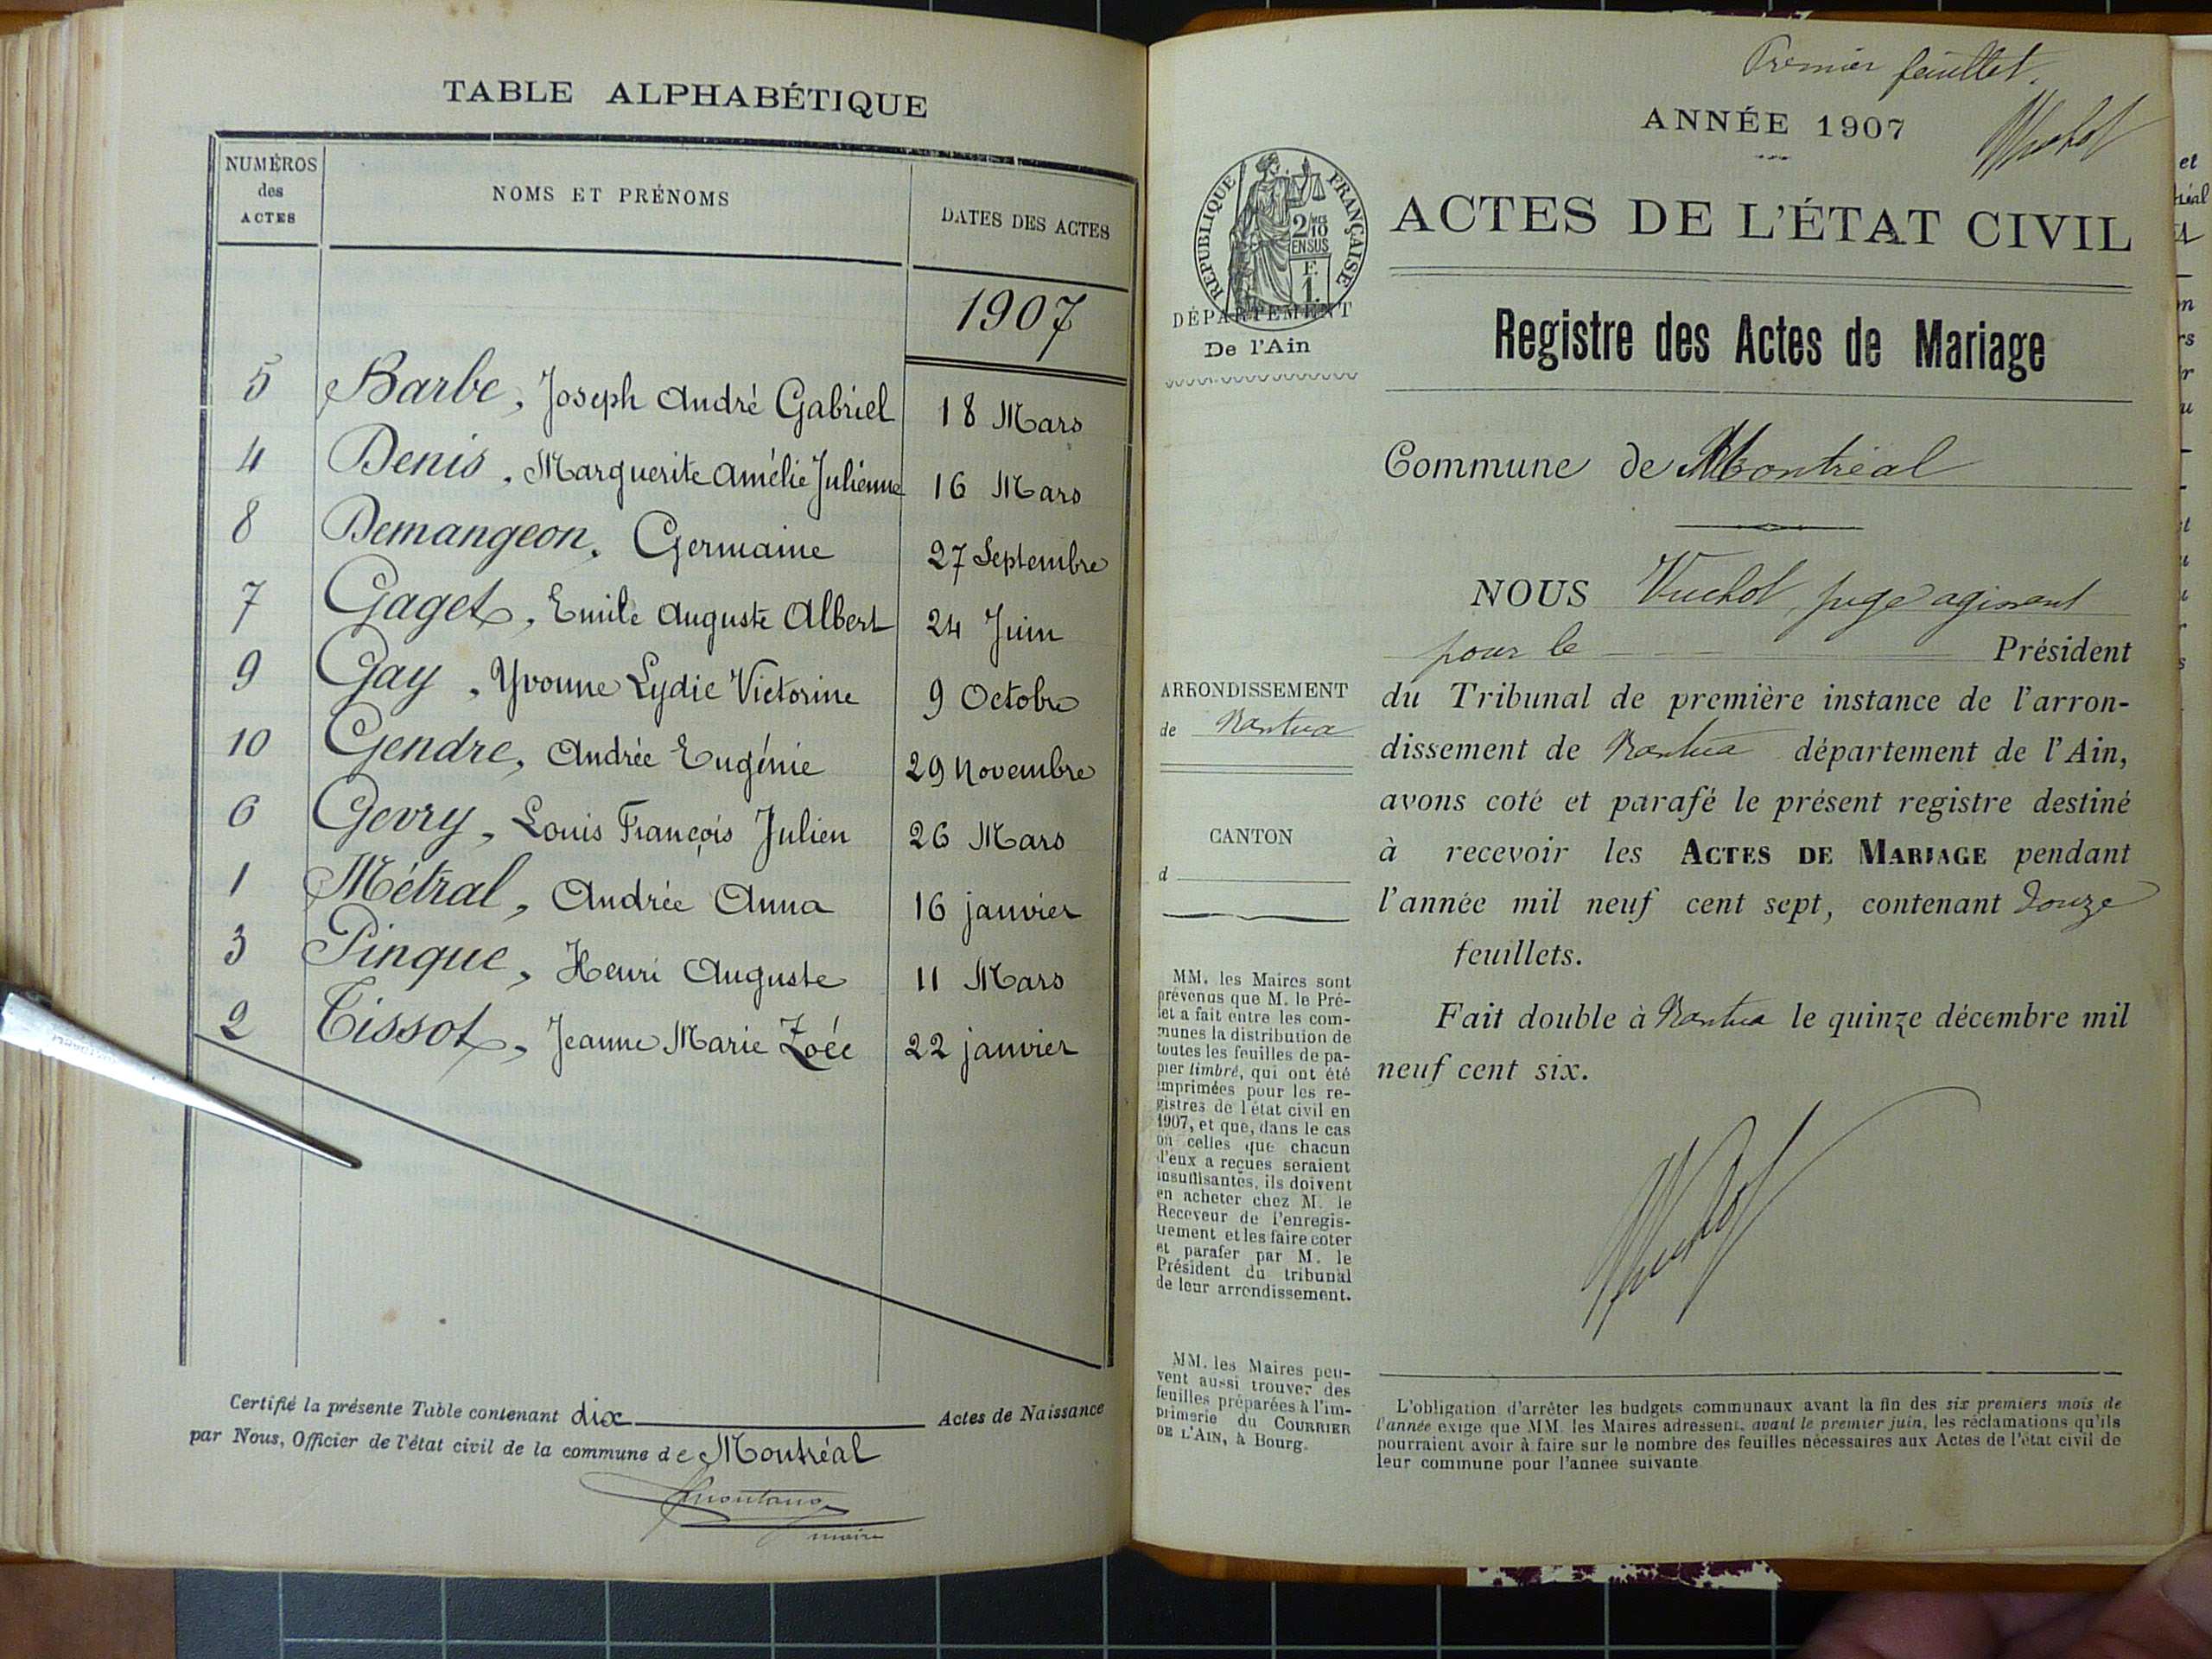 TABLE ALPHABÉTIQUE
NUMÉROS
des
ACTES
NOMS ET PRÉNOMS
DATES DES ACTES
1907
5 Barbe, Joseph André Gabriel 18 Mars
4 Denis, Marguerite Amélie Julienne 16 Mars
8 Demangeon, Germaine 27 Septembre
7 Gaget, Emile Auguste Albert 24 Juin
9 Gay, Yvonne Lydie Victorine 9 Octobre
10 Gendre, Andrée Eugénie 29 Novembre
6 Gevry, Louis François Julien 26 Mars
1 Métral, Andrée Anna 16 janvier
3 Pinque, Henri Auguste 11 Mars
2 Tissot, Jeanne Marie Zoée 22 janvier
Certifié la présente Table contenant dix Actes de Naissance
par Nous, Officier de l'état civil de la commune de Montréal
maire
Premier feuillet.
ANNÉE 1907
Vuchot
RÉPUBLIQUE FRANÇAISE
2/10 MES
EN SUS
F.
1.
DÉPARTEMENT
De l'Ain
ACTES DE L'ÉTAT CIVIL
Registre des Actes de Mariage
Commune de Montréal
NOUS Vuchot, juge agissant
pour le Président
du Tribunal de première instance de l'arron-
dissement de Nantua département de l'Ain,
avons coté et parafé le présent registre destiné
à recevoir les ACTES DE MARIAGE pendant
l'année mil neuf cent sept, contenant douze
feuillets.
Fait double à Nantua le quinze décembre mil
neuf cent six.
Vuchot
ARRONDISSEMENT
de Nantua
CANTON
d
MM. les Maires sont
prévenus que M. le Pré-
fet a fait entre les com-
munes la distribution de
toutes les feuilles de pa-
pier timbré, qui ont été
imprimées pour les re-
gistres de l'état civil en
1907, et que, dans le cas
où celles que chacun
d'eux a reçues seraient
insuffisantes, ils doivent
en acheter chez M. le
Receveur de l'enregis-
trement et les faire coter
et parafer par M. le
Président du tribunal
de leur arrondissement.
MM. les Maires peu-
vent aussi trouver des
feuilles préparées à l'im-
primerie du COURRIER
DE L'AIN, à Bourg.
L'obligation d'arrêter les budgets communaux avant la fin des six premiers mois de
l'année exige que MM. les Maires adressent, avant le premier juin, les réclamations qu'ils
pourraient avoir à faire sur le nombre des feuilles nécessaires aux Actes de l'état civil de
leur commune pour l'année suivante.